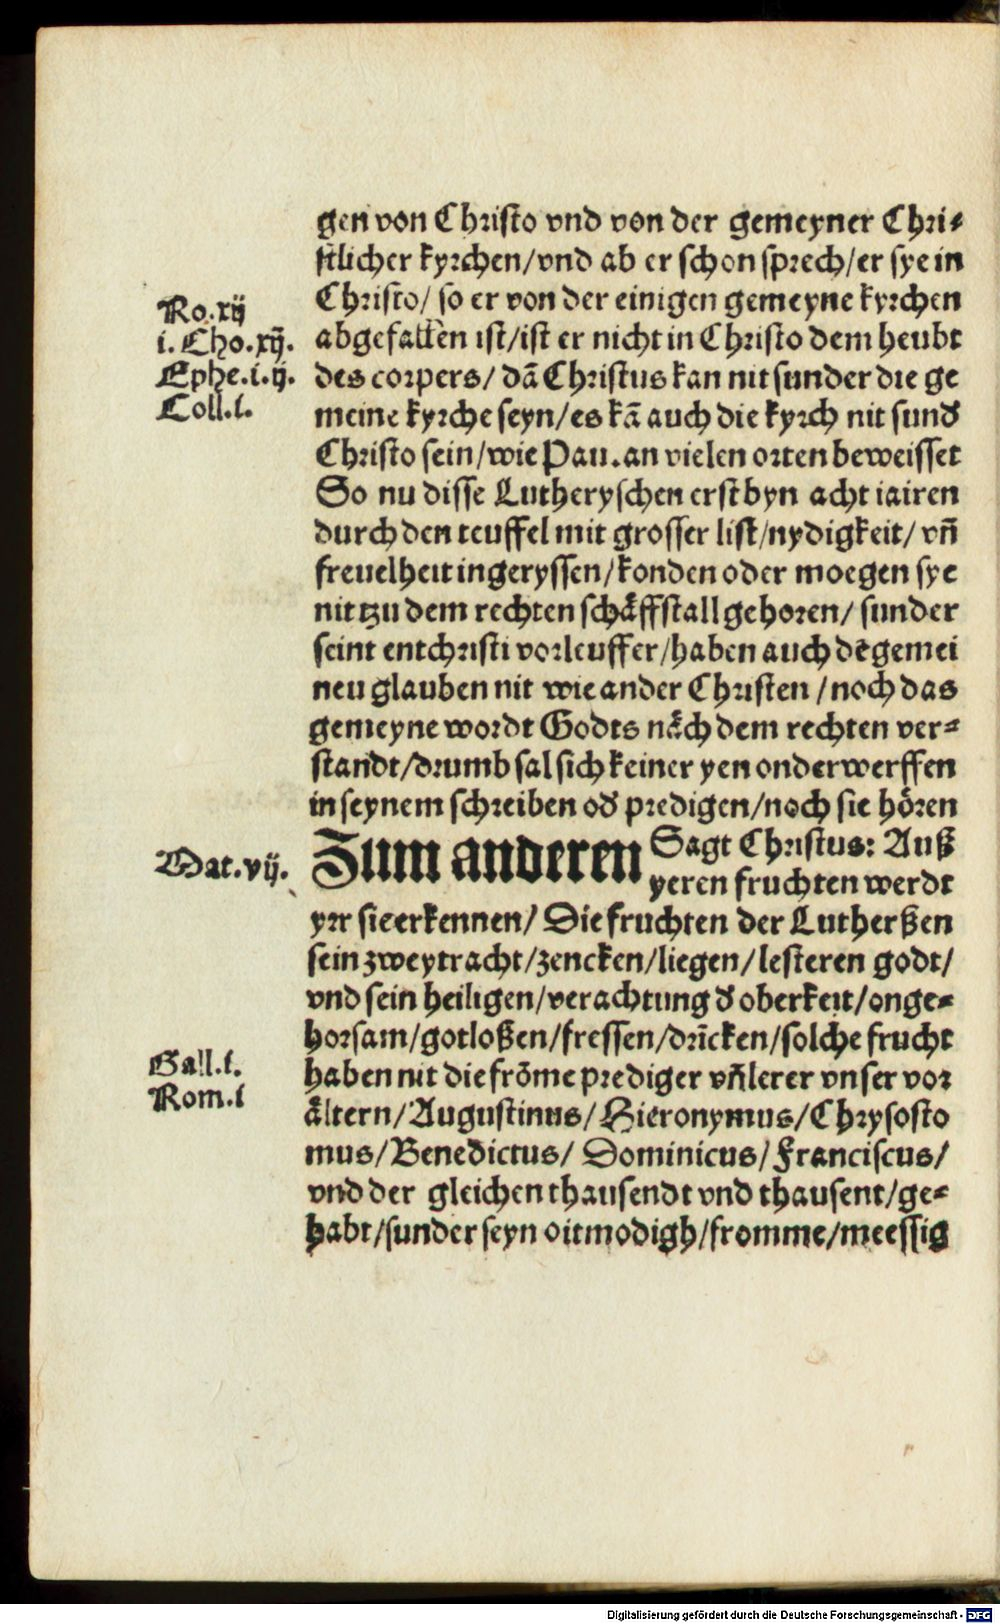 gen von Christo vnd von der gemeyner Chri-
stlicher kyrchen/vnd ab er schon sprech/er sye in
Christo/ so er von der einigen gemeyne kyrchen
abgefallen ist/ist er nicht in Christo dem heubt
des corpers/ dā Christus kan nit sunder die ge
meine kyrche seyn/es kā auch die kyrch nit sund
Christo sein/wie Pau.an vielen orten beweisset
So nu disse Lutheryschen erst byn acht iairen
durch den teuffel mit grosser list/nydigkeit/ vn̄
freuelheit ingeryssen/konden oder moegen sye
nit tzu dem rechten schåffstall gehoren/ sunder
seint entchristi vorleuffer/haben auch dē gemei
nen glauben nit wie ander Christen /noch das
gemeyne wordt Godts nåch dem rechten ver-
standt/drumb sal sich keiner yen onderwerffen
in seynem schreiben od predigen/noch sie hören
Zum anderen Sagt Christus: Auß
yeren fruchten werdt
yrr sie erkennen/ Die fruchten der Lutherßen
sein zweytracht/zencken/liegen/lesteren godt/
vnd sein heiligen/verachtung d oberkeit/onge-
horsam/gotloßen/fressen/drīcken/solche frucht
haben nit die frōme prediger vn̄ lerer vnser vor
ältern/Augustinus/Hieronymus/Chrysosto
mus/Benedictus/ Dominicus/Franciscus/
vnd der gleichen thausendt vnd thausent/ge-
habt/sunder seyn oitmodigh/fromme/meessig
Ro.xij
i.Cho.xij.
Ephe.i.ij.
Coll.i.
Mat.vij.
Gall.i.
Rom.i
Digitalisierung gefördert durch die Deutsche Forschungsgemeinschaft - DFG